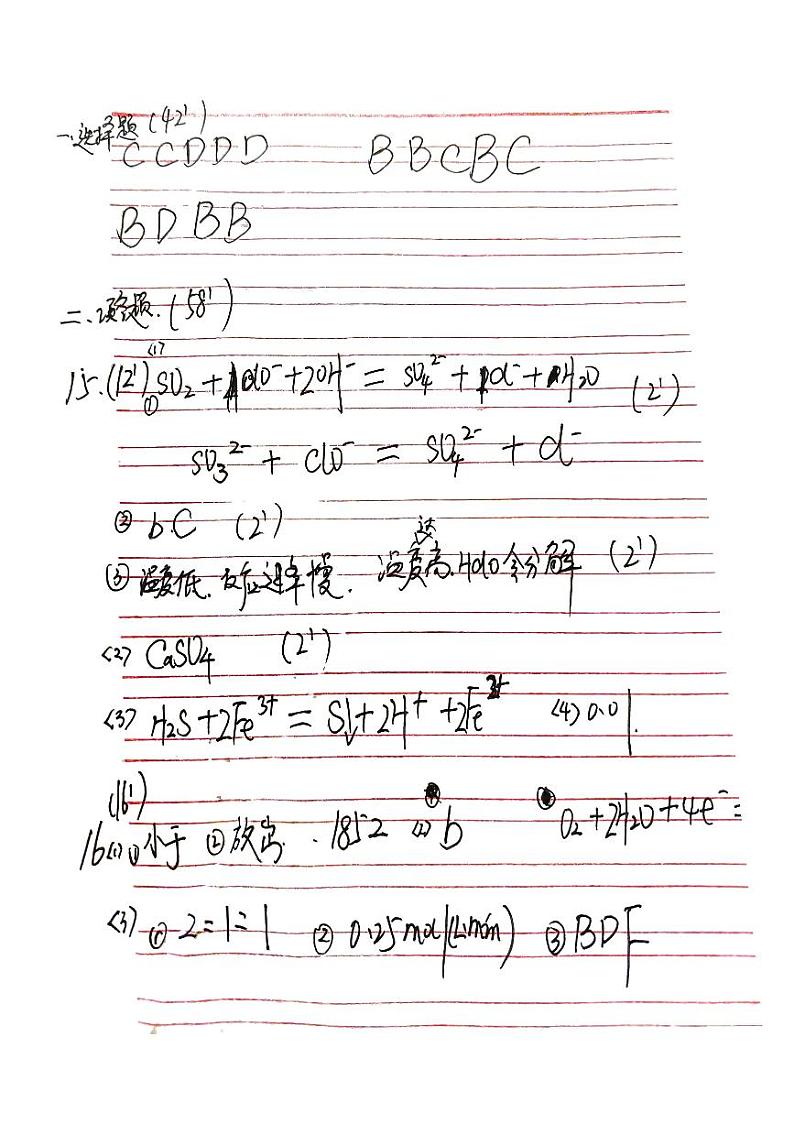 一.选择题(42')
CCDDD BBCBC
BDBB
二、填空题.(58')
15.(12')(1)① SO₂+ClO⁻+2OH⁻=SO₄²⁻+Cl⁻+H₂O (2')
SO₃²⁻+ClO⁻=SO₄²⁻+Cl⁻
② b.C (2')
③ 温度低.反应速率慢. 温度过高.HClO会分解 (2')
(2) CaSO₄ (2')
(3) H₂S+2Fe³⁺=S↓+2H⁺+2Fe²⁺ (4) 0.01.
(16')
16(1)①小于 ②放出. 1852 (2) b O₂+2H₂O+4e⁻=
(3) ① 2=1=1 ② 0.125mol/(L·min) ③ BDE